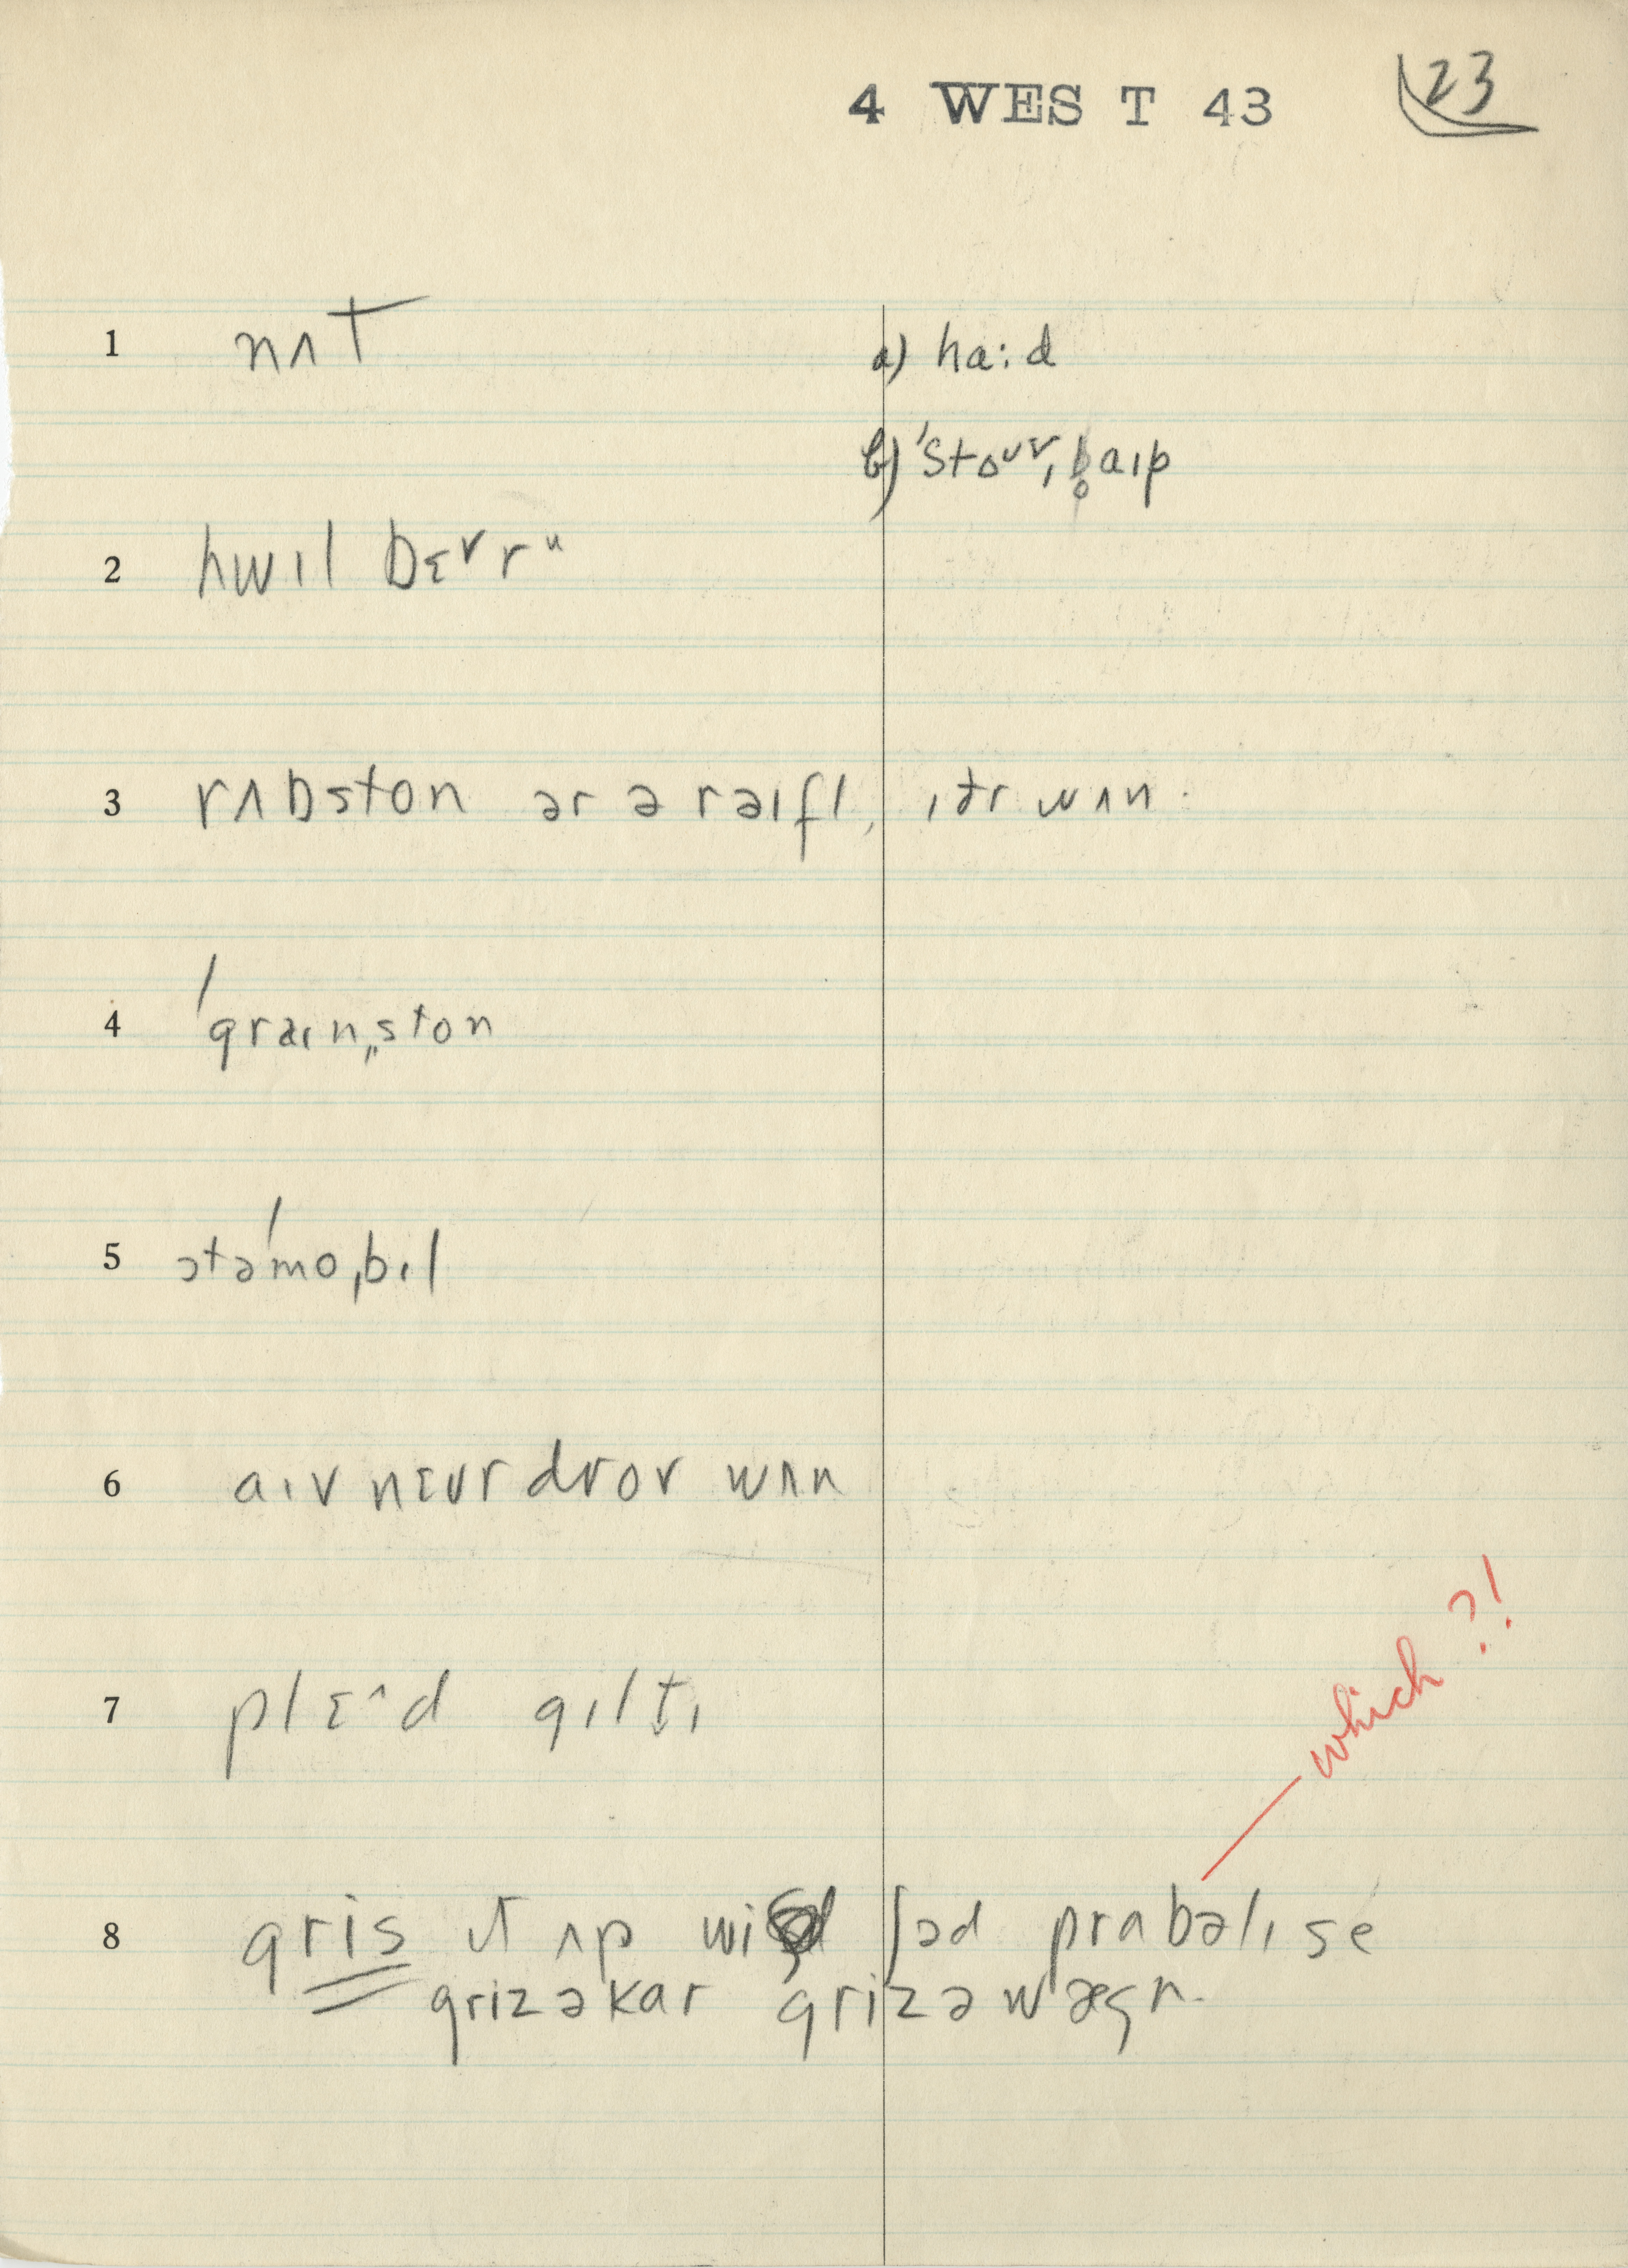 4 WEST 43 23
1 nʌt a) ha:d
b) ˈstoʊr, b̥aɪp
2 hwɪl bɛrr
3 rʌbston ər ə raɪfl, ɪðr wʌn.
4 ˈgraɪnˌston
5 ɔtəˈmoˌbɪl
6 aɪv nɛvr drov wʌn
7 plɛˆd gɪltɪ
8 gris ɪt ʌp wi ʃəd prabəlɪ se
grizəkar grizəwægn.
which ?!